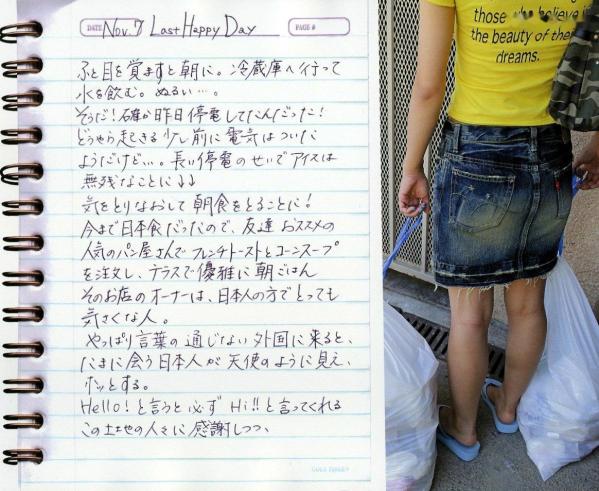 DATE Nov. 7 Last Happy Day PAGE #
ふと目を覚ますと朝に。冷蔵庫へ行って
水を飲む。ぬるい…。
そうだ!確か昨日停電してたんだった!
どうやら起きる少し前に電気はついた
ようだけど…。長い停電のせいでアイスは
無残なことに↓↓
気をとりなおして朝食をとることに!
今まで日本食だったので、友達おススメの
人気のパン屋さんでフレンチトーストとコーンスープ
を注文し、テラスで優雅に朝ごはん
そのお店のオーナーは、日本人の方でとっても
気さくな人。
やっぱり言葉の通じない外国に来ると、
たまに会う日本人が天使のように見え、
ホッとする。
Hello!と言うと必ずHi!!と言ってくれる
この土地の人々に感謝しつつ、
those who believe in
the beauty of their
dreams.